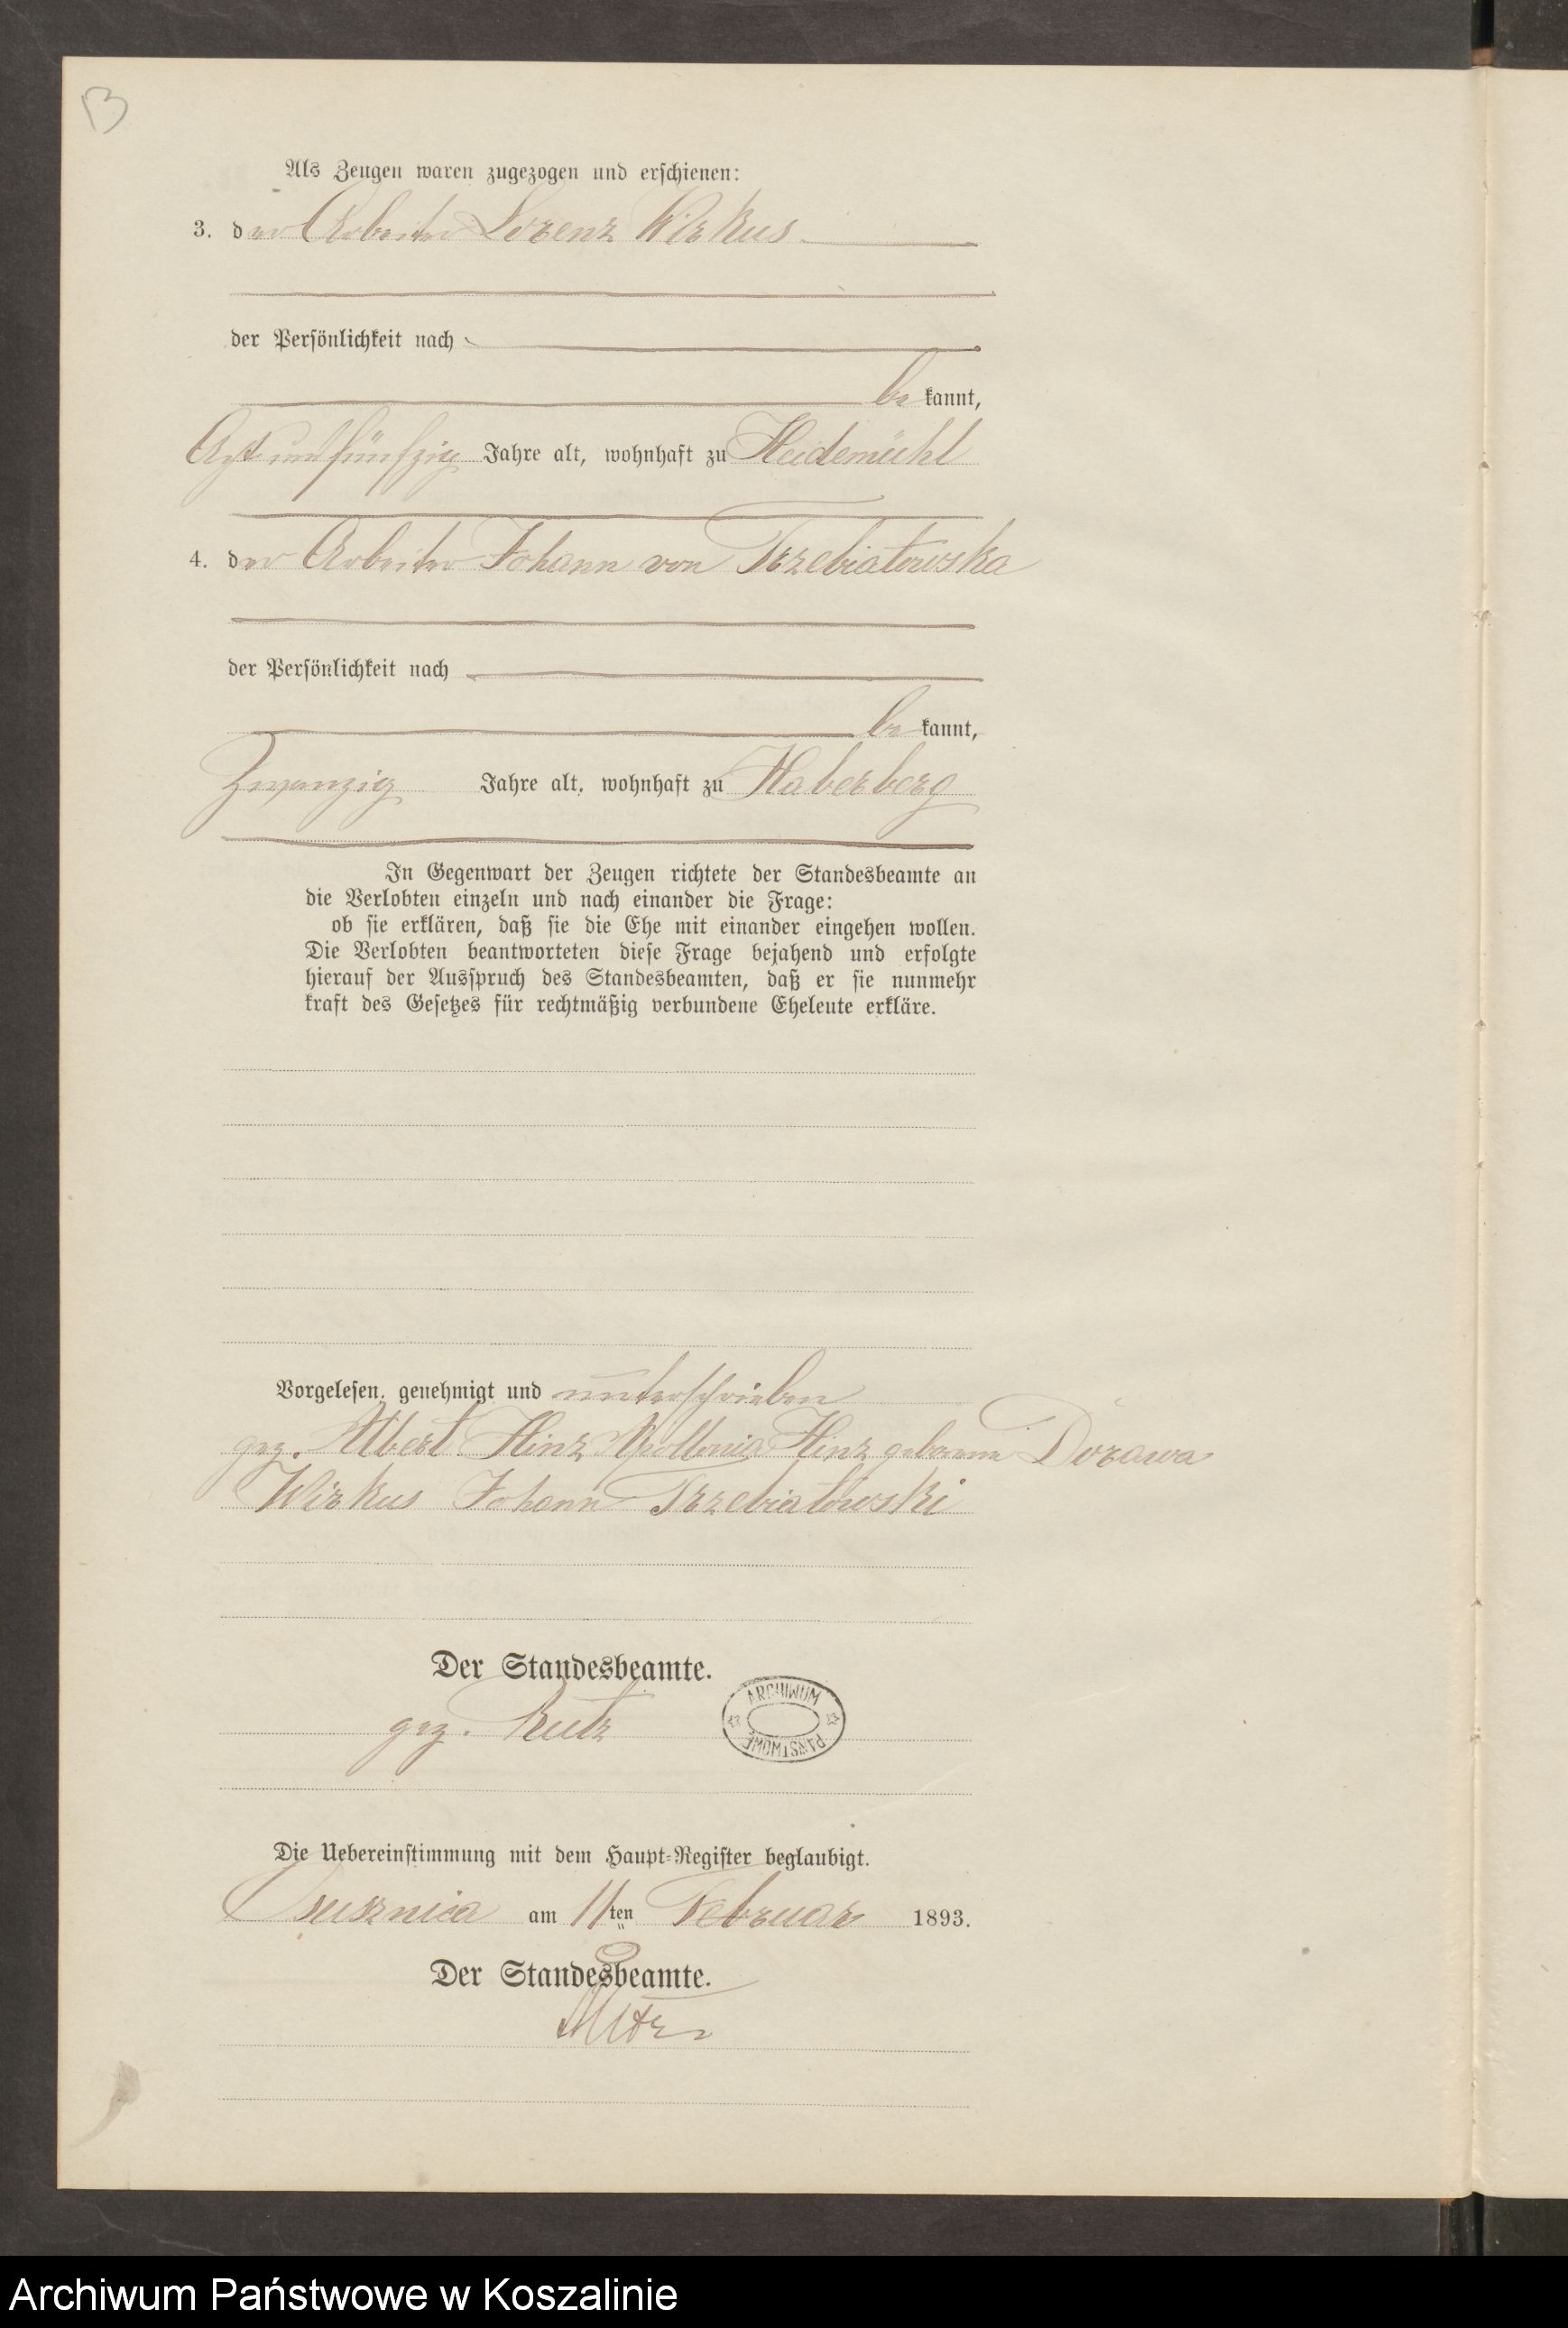 B
Als Zeugen waren zugezogen und erschienen:
3. der Arbeiter Lorenz Wirkus
der Persönlichkeit nach
be kannt,
Acht und fünfzig Jahre alt, wohnhaft zu Heidemühl
4. der Arbeiter Johann von Trzebiatowska
der Persönlichkeit nach
be kannt,
Zwanzig Jahre alt, wohnhaft zu Haberberg
In Gegenwart der Zeugen richtete der Standesbeamte an
die Verlobten einzeln und nach einander die Frage:
ob sie erklären, daß sie die Ehe mit einander eingehen wollen.
Die Verlobten beantworteten diese Frage bejahend und erfolgte
hierauf der Ausspruch des Standesbeamten, daß er sie nunmehr
kraft des Gesetzes für rechtmäßig verbundene Eheleute erkläre.
Vorgelesen, genehmigt und unterschrieben
gez. Albert Hinz Apollonia Hinz geborene Dorawa
Wirkus Johann Trzebiatowski
Der Standesbeamte.
gez.
ARCHIWUM PAŃSTWOWE
Die Uebereinstimmung mit dem Haupt-Register beglaubigt.
am 11ten Februar 1893.
Der Standesbeamte.
Archiwum Państwowe w Koszalinie